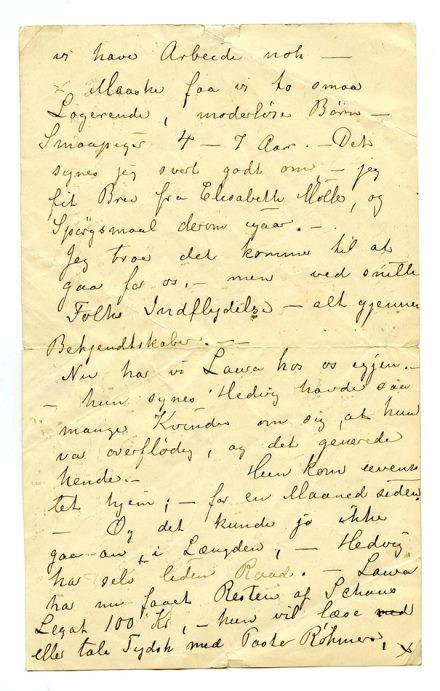 vi have Arbeide nok —
Maaske faa vi to smaa
Logerende, moderløse Børn —
Smaapiger 4 — 7 Aar. — Det
synes jeg svert godt om, — jeg
fik Brev fra Elisabeth Mølle, og
Spørgsmaal derom igaar. —
Jeg troe det kommer til at
gaa for os, — men ved snille
Folks Indflydelse — alt gjennem
Bekjendtskaber. —
Nu har vi Laura hos os igjen. —
— hun synes Hedvig havde saa
mange Kvinder om sig, at hun
var overflødig, og det generede
hende. — Hun kom uvented
tet hjem; — for en Maaned siden
— Og det kunde jo ikke
gaa an, i Længden, — Hedvig
har selv liden Raad. — Laura
har nu faaet Resten af Schaus
Legat 100 Kr, — hun vil læse ved
eller tale Tydsk med Pastor Røhmers, x